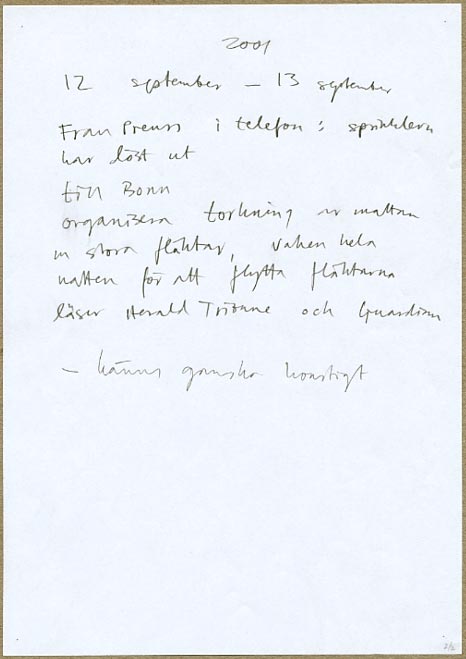 2001
12 september – 13 september
Frau Preuss i telefon: sprinklern
har löst ut
till Bonn
organisera torkning av mattan
m stora fläktar, vaken hela
natten för att flytta fläktarna
läser Herald Tribune och Guardian
– känns ganska konstigt